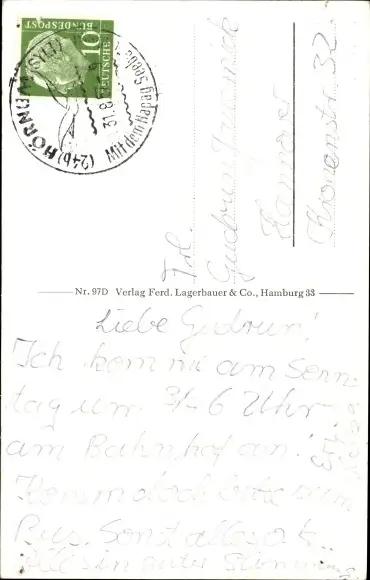 DEUTSCHE
BUNDESPOST
10
(24b) HÖRNUM (SYLT)
31.8.
Mit dem
Frl.
Gudrun
Hannover
Kronenstr. 32
Nr. 97D Verlag Ferd. Lagerbauer & Co., Hamburg 33
Liebe Gudrun!
Ich komm am Sonn-
tag um 6 Uhr
am Bahnhof an!
Komm doch bitte zum
Bus. Sonst alles o.k.
Alles in guter Stimmung